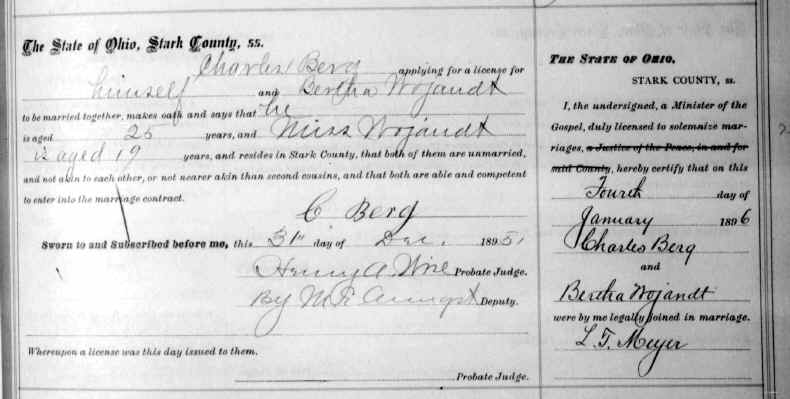 The State of Ohio, Stark County, ss.
Charles Berg applying for a license for
himself and Bertha Wojandt
to be married together, makes oath and says that he
is aged 25 years, and Miss Wojandt
is aged 19 years, and resides in Stark County, that both of them are unmarried,
and not akin to each other, or not nearer akin than second cousins, and that both are able and competent
to enter into the marriage contract.
C Berg
Sworn to and Subscribed before me, this 31st day of Dec. 1895
Henry A. Wise Probate Judge.
By Deputy.
Whereupon a license was this day issued to them.
Probate Judge.
THE STATE OF OHIO,
STARK COUNTY, ss.
I, the undersigned, a Minister of the
Gospel, duly licensed to solemnize mar-
riages, a Justice of the Peace, in and for
said County, hereby certify that on this
Fourth day of
January 1896
Charles Berg
and
Bertha Wojandt
were by me legally joined in marriage.
L. F. Meyer